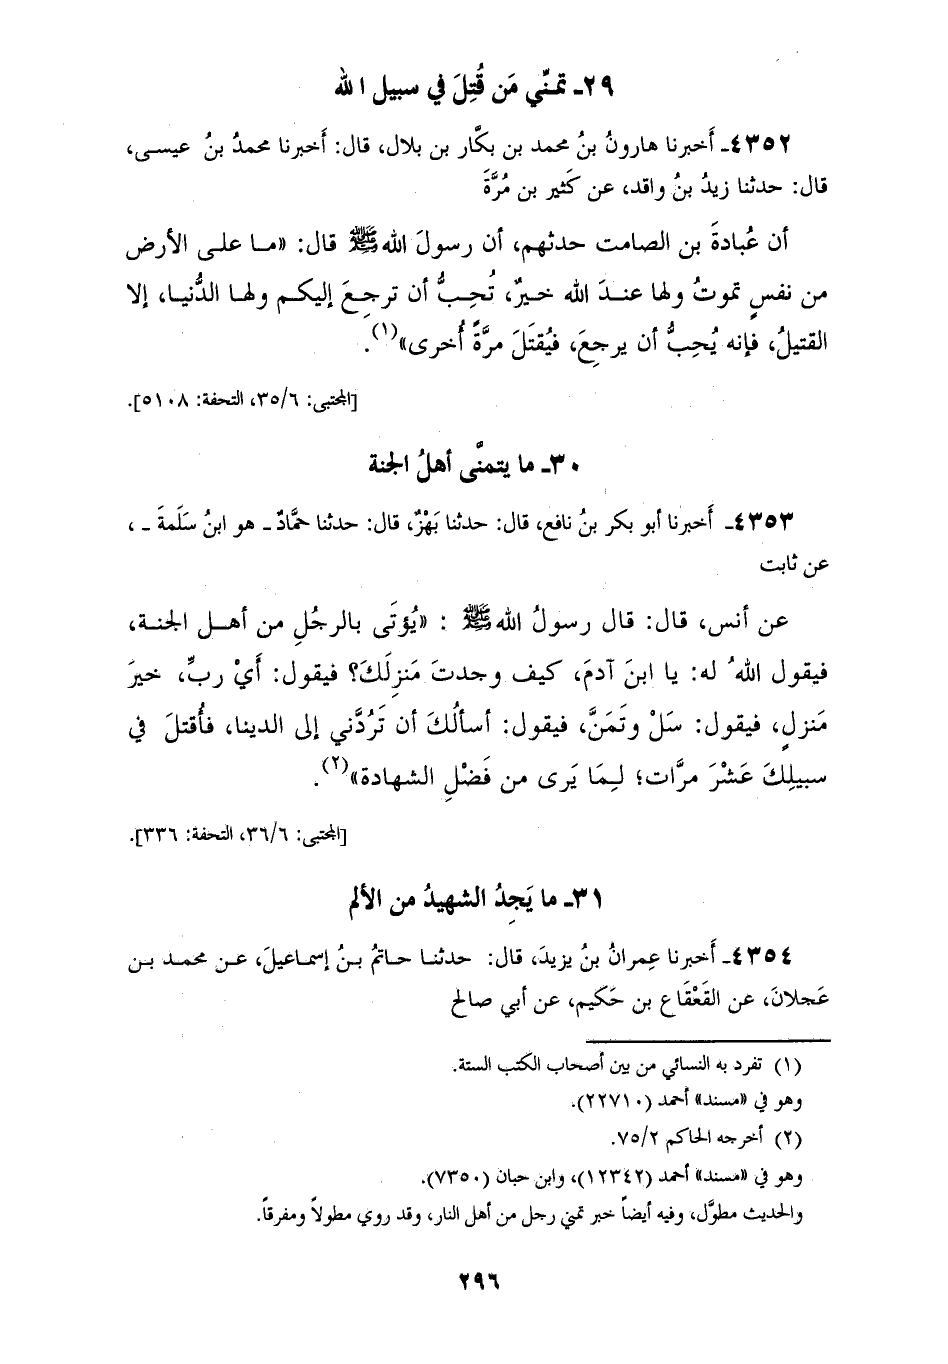 ٢٩ـ تمنِّي مَن قُتِلَ في سبيل الله
٤٣٥٢ـ أَخبرنا هارونُ بنُ محمد بن بكَّار بن بلال، قال: أَخبرنا محمدُ بنُ عيسى،
قال: حدثنا زيدُ بنُ واقد، عن كَثير بن مُرَّةَ
أن عُبادةَ بن الصامت حدثهم، أن رسولَ الله ﷺ قال: «ما على الأرض
من نفسٍ تموتُ ولها عندَ الله خيرٌ، تُحِبُّ أن ترجِعَ إليكم ولها الدُّنيا، إلا
القتيلُ، فإنه يُحِبُّ أن يرجِعَ، فيُقتَلَ مرَّةً أُخرى»(١).
[المجتبى: ٣٥/٦، التحفة: ٥١٠٨].
٣٠ـ ما يتمنَّى أهلُ الجنة
٤٣٥٣ـ أَخبرنا أبو بكر بنُ نافع، قال: حدثنا بَهْزٌ، قال: حدثنا حمَّادٌ ـ هو ابنُ سَلَمةَ ـ ،
عن ثابت
عن أنس، قال: قال رسولُ الله ﷺ : «يُؤتَى بالرجُلِ من أهل الجنة،
فيقول اللهُ له: يا ابنَ آدمَ، كيف وجدتَ مَنزِلَكَ؟ فيقول: أَيْ ربِّ، خيرَ
مَنزلٍ، فيقول: سَلْ وتَمَنَّ، فيقول: أسألُكَ أن تَرُدَّني إلى الدينا، فأُقتلَ في
سبيلِكَ عَشْرَ مرَّات؛ لِمَا يَرى من فَضْلِ الشهادة»(٢).
[المجتبى: ٣٦/٦، التحفة: ٣٣٦].
٣١ـ ما يَجِدُ الشهيدُ من الألم
٤٣٥٤ـ أَخبرنا عِمرانُ بنُ يزيدَ، قال: حدثنا حاتمُ بنُ إسماعيلَ، عن محمد بن
عَجلانَ، عن القَعْقَاع بن حَكيم، عن أبي صالح
(١) تفرد به النسائي من بين أصحاب الكتب الستة.
وهو في «مسند» أحمد (٢٢٧١٠).
(٢) أخرجه الحاكم ٧٥/٢.
وهو في «مسند» أحمد (١٢٣٤٢)، وابن حبان (٧٣٥٠).
والحديث مطوَّل، وفيه أيضاً خبر تمني رجل من أهل النار، وقد روي مطولاً ومفرقاً.
٢٩٦